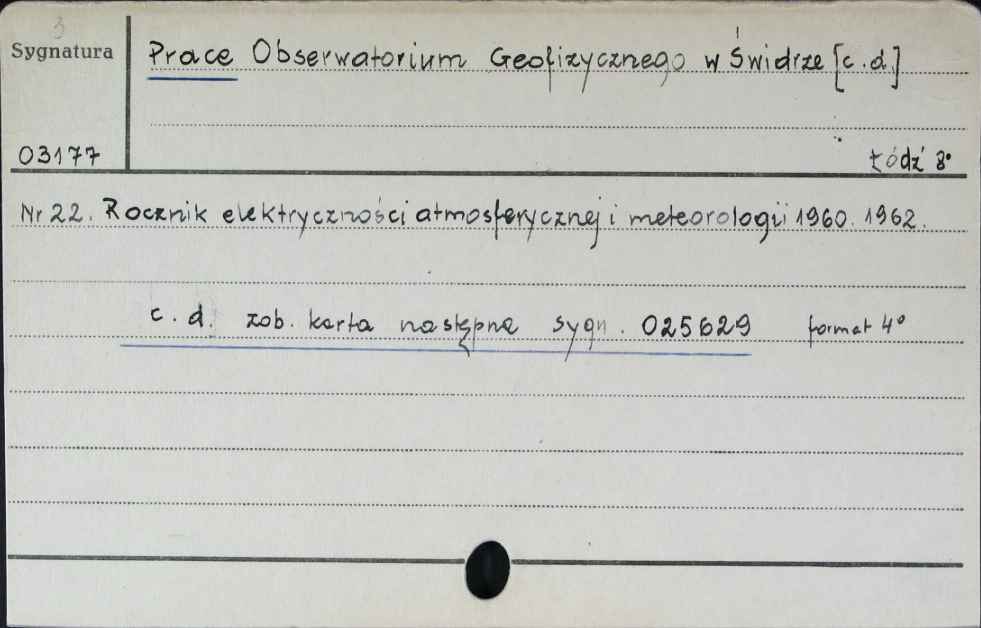 3
Sygnatura
Prace Obserwatorium Geofizycznego w Świdrze [c.d.]
03177
Łódź 8°
Nr 22. Rocznik elektryczności atmosferycznej i meteorologii 1960. 1962.
c.d. zob. karta następna sygn. 025629 format 4°